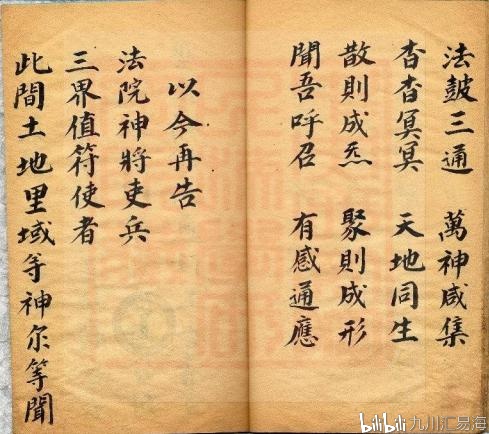 法鼓三通 萬神咸集
杳杳冥冥 天地同生
散則成炁 聚則成形
聞吾呼召 有感通應
以今再告
法院神將吏兵
三界值符使者
此間土地里域等神尔等聞
bilibili 九川汇易海